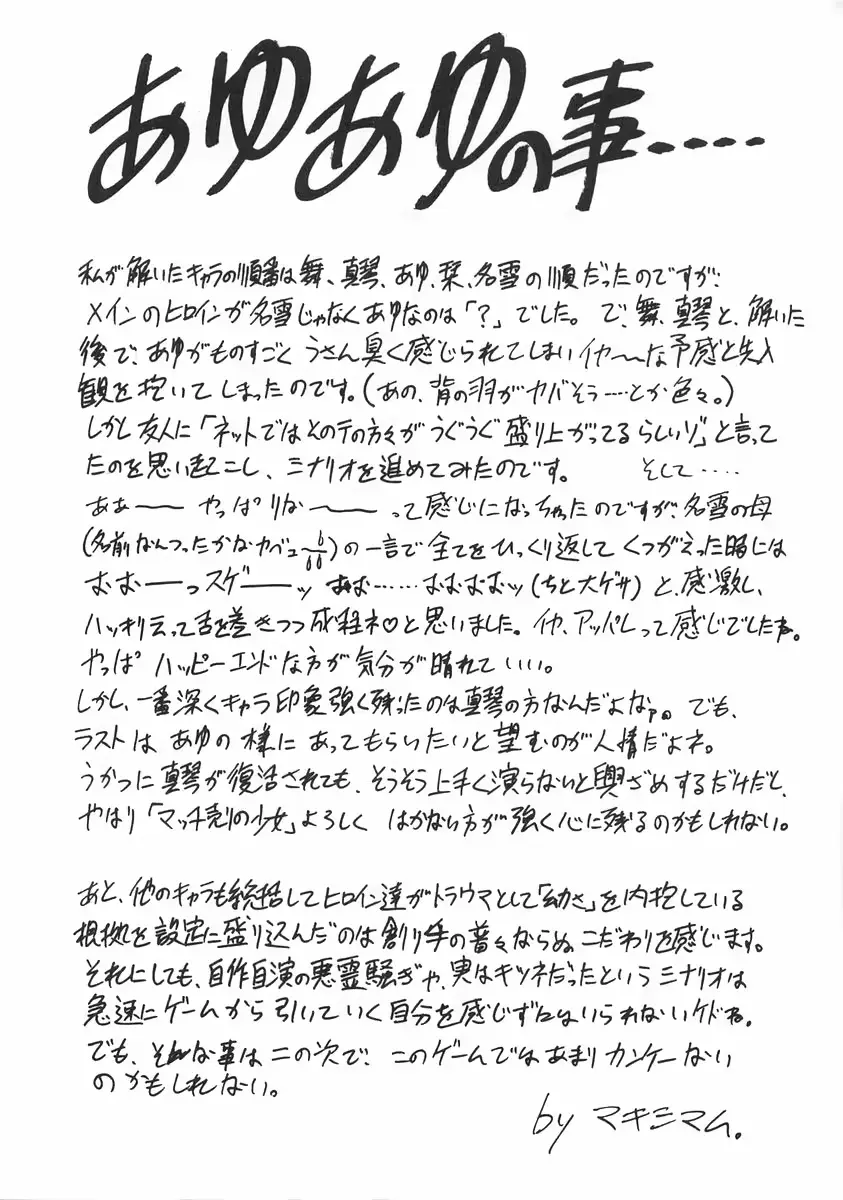 あゆあゆの事・・・・
私が解いたキャラの順番は舞、真琴、あゆ、栞、名雪の順だったのですが、
メインのヒロインが名雪じゃなくあゆなのは「?」でした。で、舞、真琴と、解いた
後で、あゆがものすごくうさん臭く感じられてしまいイヤ〜〜な予感と先入
観を抱いてしまったのです。(あの、背の羽がヤバそう…とか色々。)
しかし友人に「ネットではそのテの方々がうぐうぐ盛り上がってるらしいゾ」と言って
たのを思い起こし、シナリオを進めてみたのです。 そして・・・・
あぁーー やっぱりなーー って感じになっちゃったのですが、名雪の母
(名前なんつったかなカベュ〜)の一言で全てをひっくり返してくつがえった時には
おおーーっスゲーーッ おお……おおおおッ(ちと大ゲサ)と、感激し、
ハッキリ云って舌を巻きつつ成程ネ♡と思いました。イヤ、アッパレって感じでしたね。
やっぱ ハッピーエンドな方が気分が晴れていい。
しかし、一番深くキャラ印象強く残ったのは真琴の方なんだよなァ。でも、
ラストは あゆの様に あってもらいたいと望むのが人情だよネ。
うかつに真琴が復活されても、そうそう上手く演らないと興ざめするだけだし、
やはり「マッチ売りの少女」よろしく はかない方が強く心に残るのかもしれない。
あと、他のキャラも総括してヒロイン達がトラウマとして「幼さ」を内抱している
根拠を設定に盛り込んだのは創り手の並々ならぬこだわりを感じます。
それにしても、自作自演の悪霊騒ぎや、実はキツネだったというシナリオは
急速にゲームから引いていく自分を感じずにはいられないケドね。
でも、そんな事は二の次で、このゲームではあまりカンケーない
のかもしれない。
by マキシマム。